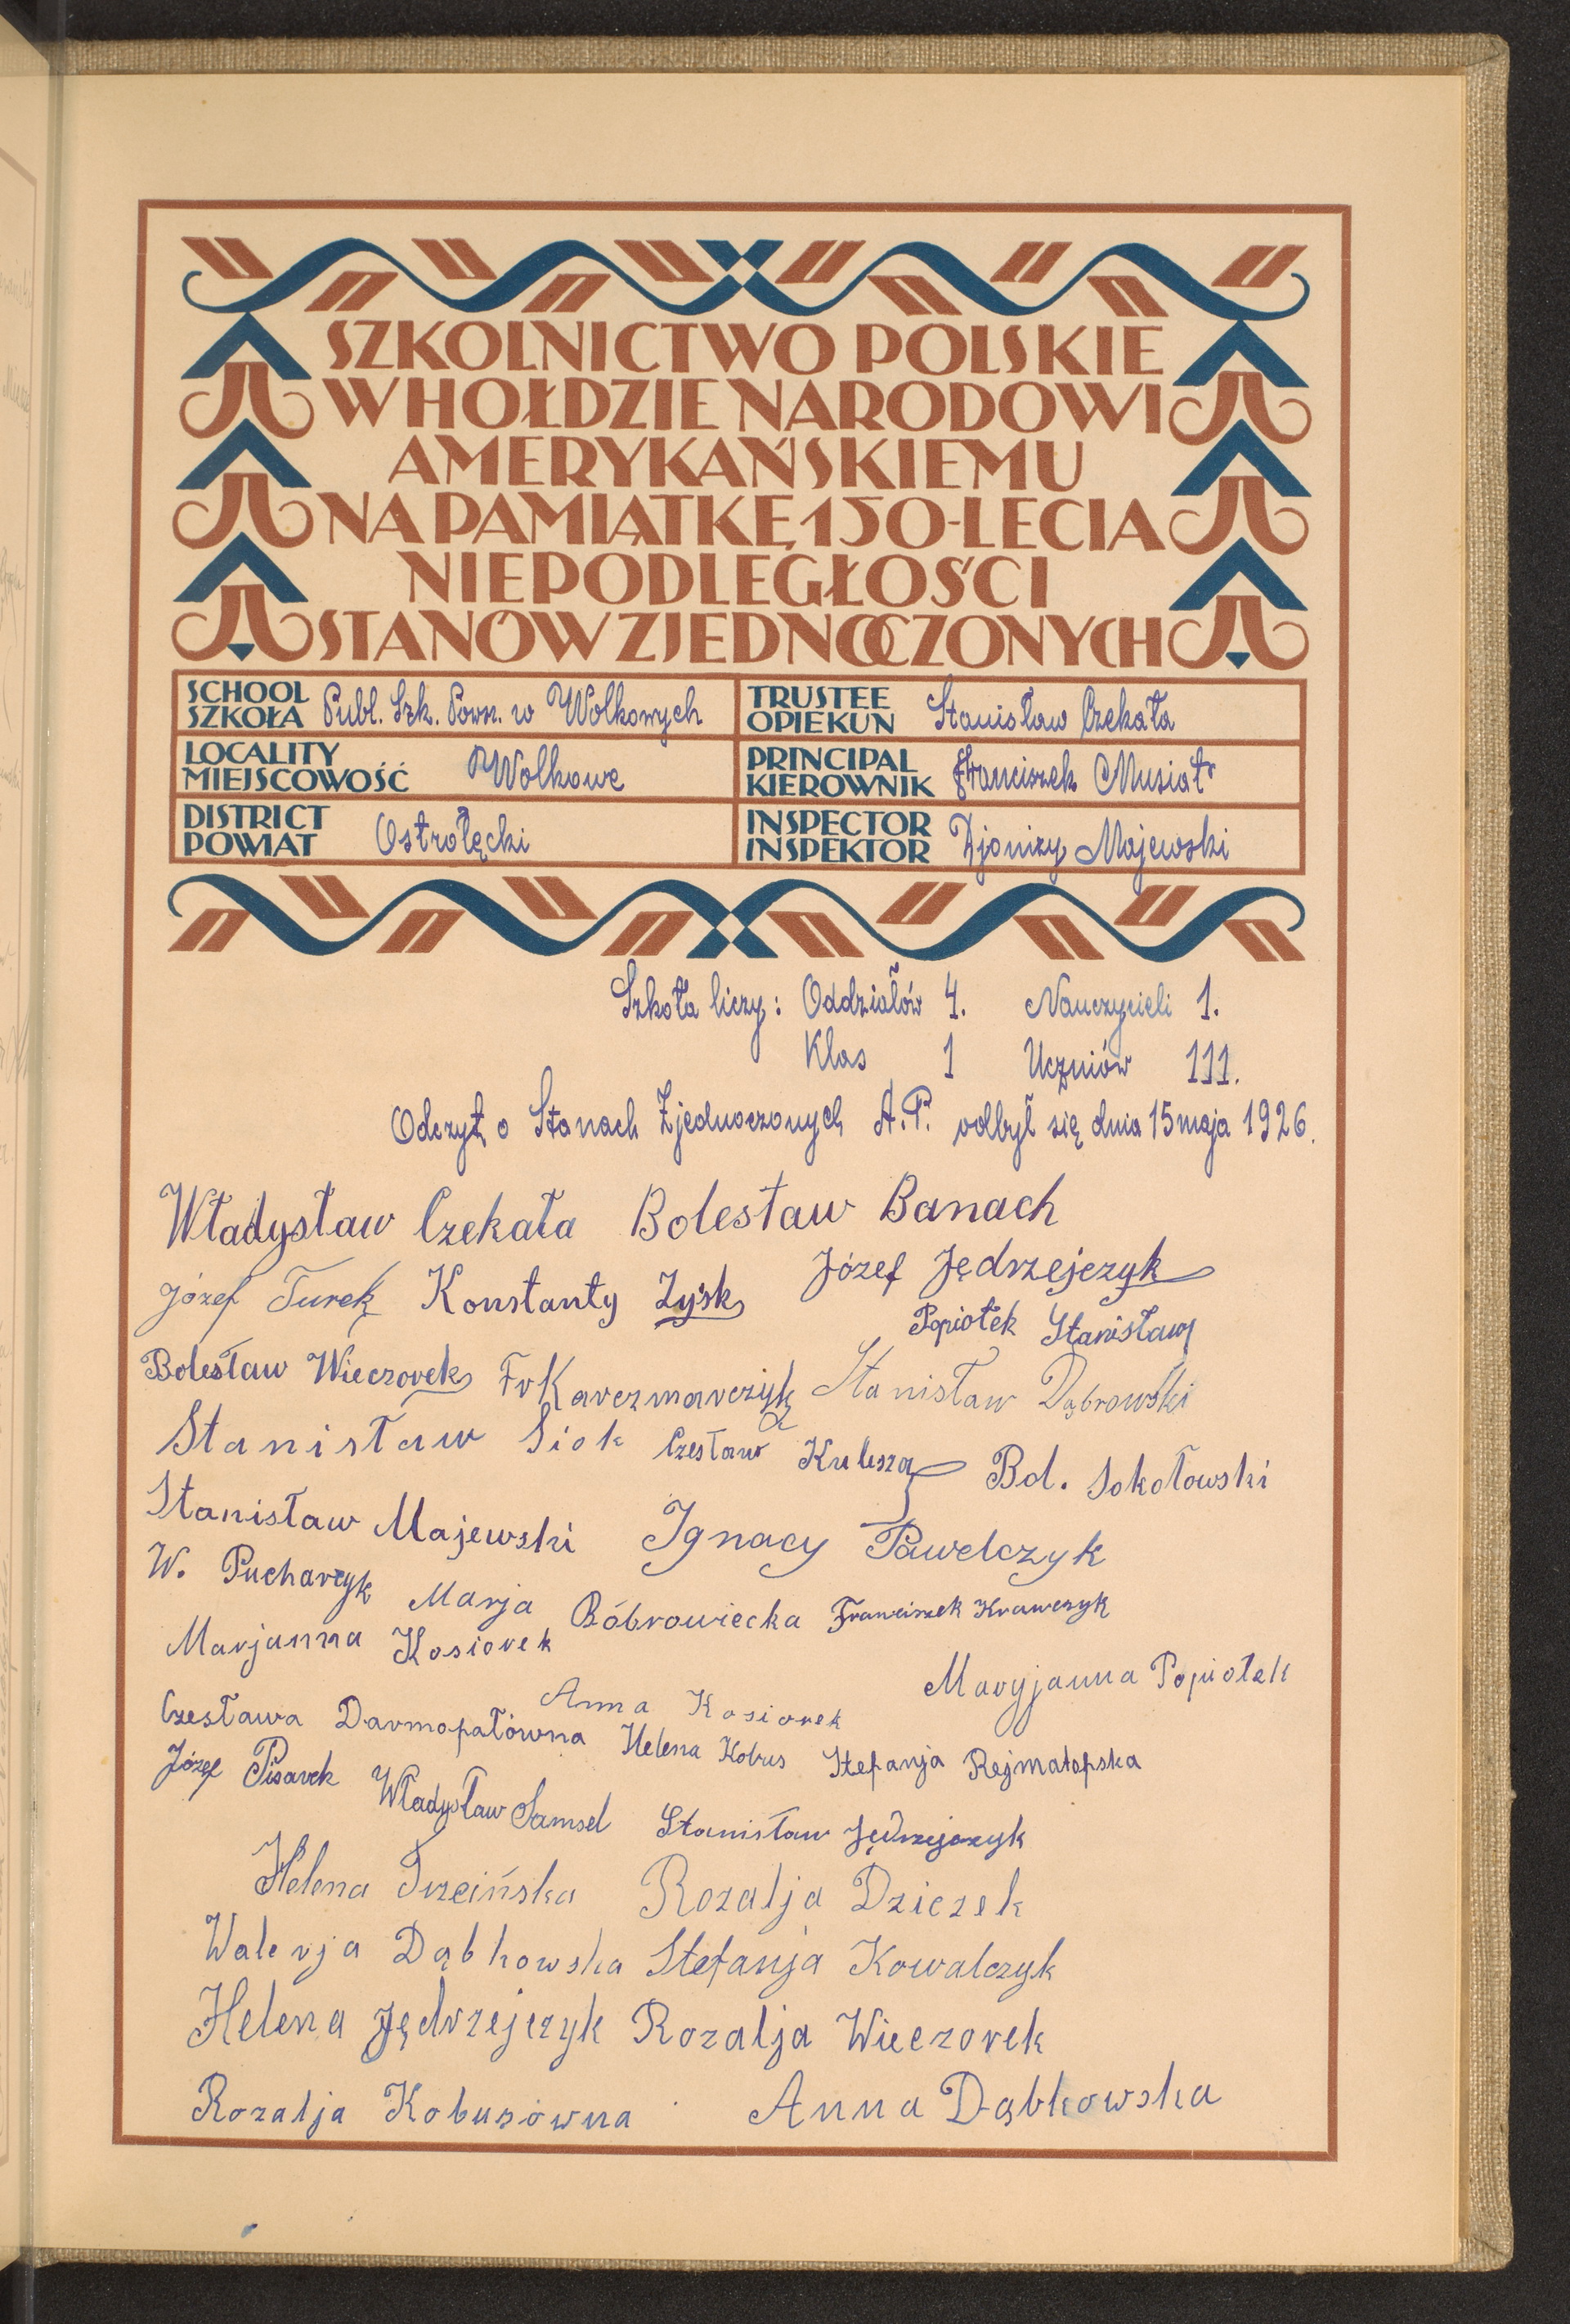 SZKOLNICTWO POLSKIE
W HOŁDZIE NARODOWI
AMERYKAŃSKIEMU
NA PAMIĄTKĘ 150-LECIA
NIEPODLEGŁOŚCI
STANÓW ZJEDNOCZONYCH
SCHOOL
SZKOŁA Publ. Szk. Pow. w Wolkowych
TRUSTEE
OPIEKUN Stanisław Czekała
LOCALITY
MIEJSCOWOŚĆ Wolkowe
PRINCIPAL
KIEROWNIK Franciszek Musiał
DISTRICT
POWIAT Ostrołęcki
INSPECTOR
INSPEKTOR Djonizy Majewski
Szkoła liczy: Oddziałów 4. Nauczycieli 1.
Klas 1 Uczniów 111.
Odczyt o Stanach Zjednoczonych A.P. odbył się dnia 15 maja 1926.
Władysław Czekała Bolesław Banach
Józef Turek Konstanty Zyśk Józef Jędrzejczyk
Popiołek Stanisław
Bolesław Wieczorek Fr Karczmarczyk Stanisław Dąbrowski
Stanisław Siok Czesław Kulesza Bol. Sokołowski
Stanisław Majewski Ignacy Pawelczyk
W. Pucharczyk Marja Bóbrowiecka Franciszek Krawczyk
Marjanna Kosiorek
Anna Kosiorek Maryjanna Popiołek
Czesława Darmopałówna Helena Kobus Stefanja
Józef Pisarek Władysław Samsel Stanisław Jędrzejczyk
Helena Trzcińska Rozalja Dziczek
Walerja Dąbkowska Stefanja Kowalczyk
Helena Jędrzejczyk Rozalja Wieczorek
Rozalja Kobusówna Anna Dąbkowska